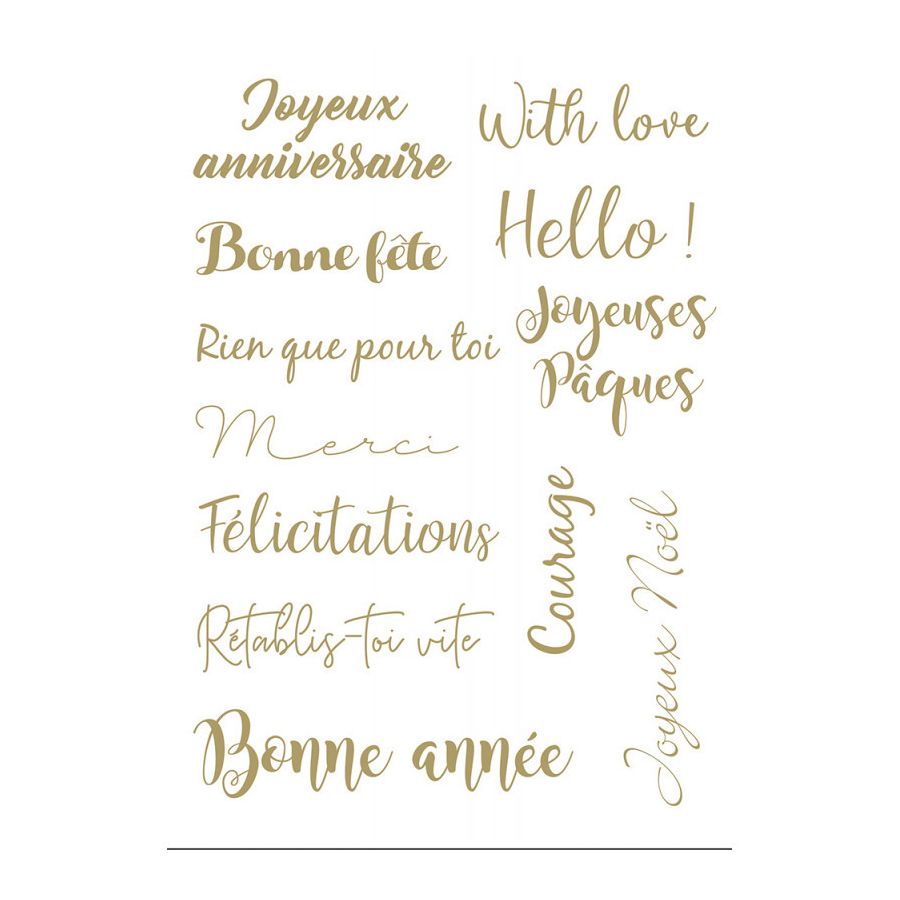 Joyeux
anniversaire
Bonne fête
Rien que pour toi
Merci
Félicitations
Rétablis-toi vite
Bonne année
With love
Hello !
Joyeuses
Pâques
Courage
Joyeux Noël